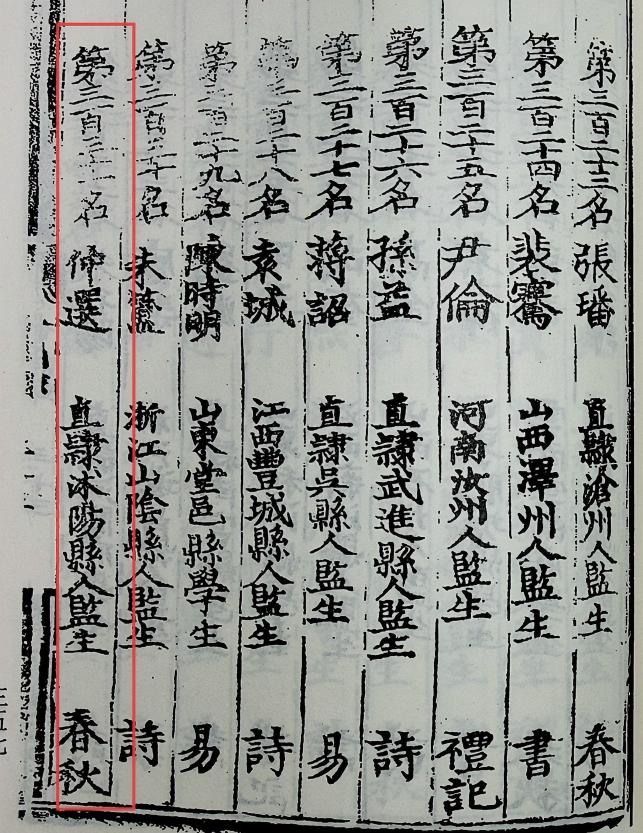 第三百二十三名 張璠 直隸滄州人監生 春秋
第三百二十四名 裴騫 山西澤州人監生 書
第三百二十五名 尹倫 河南汝州人監生 禮記
第三百二十六名 孫益 直隸武進縣人監生 詩
第三百二十七名 蔣詔 直隸吳縣人監生 易
第三百二十八名 袁城 江西豐城縣人監生 詩
第三百二十九名 陳時明 山東堂邑縣學生 易
第三百三十名 浙江山陰縣人監生 詩
第三百三十一名 仲選 直隸沭陽縣人監生 春秋